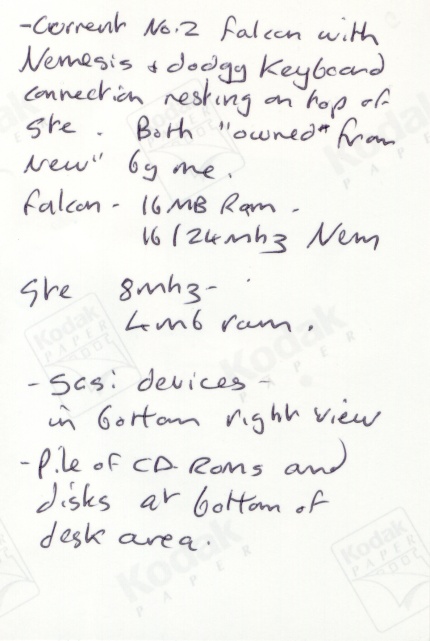 -Current No.2 Falcon with
Nemesis & dodgy Keyboard
connection resting on top of
Ste. Both "owned" from
New" by me.
Falcon - 16MB Ram.
16/24mhz Nem
Ste 8mhz-
4mb ram.
- Scsi devices -
in bottom right view
- Pile of CD Roms and
disks at bottom of
desk area.
Kodak
PAPER
Kodak
PAPER
Kodak
PAPER
Kodak
PAPER
Kodak
PAPER